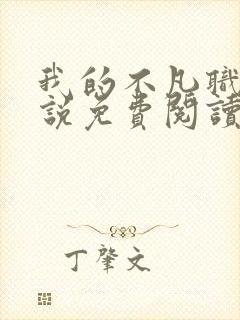 我的不凡職
說免費閱讀
丁肇文